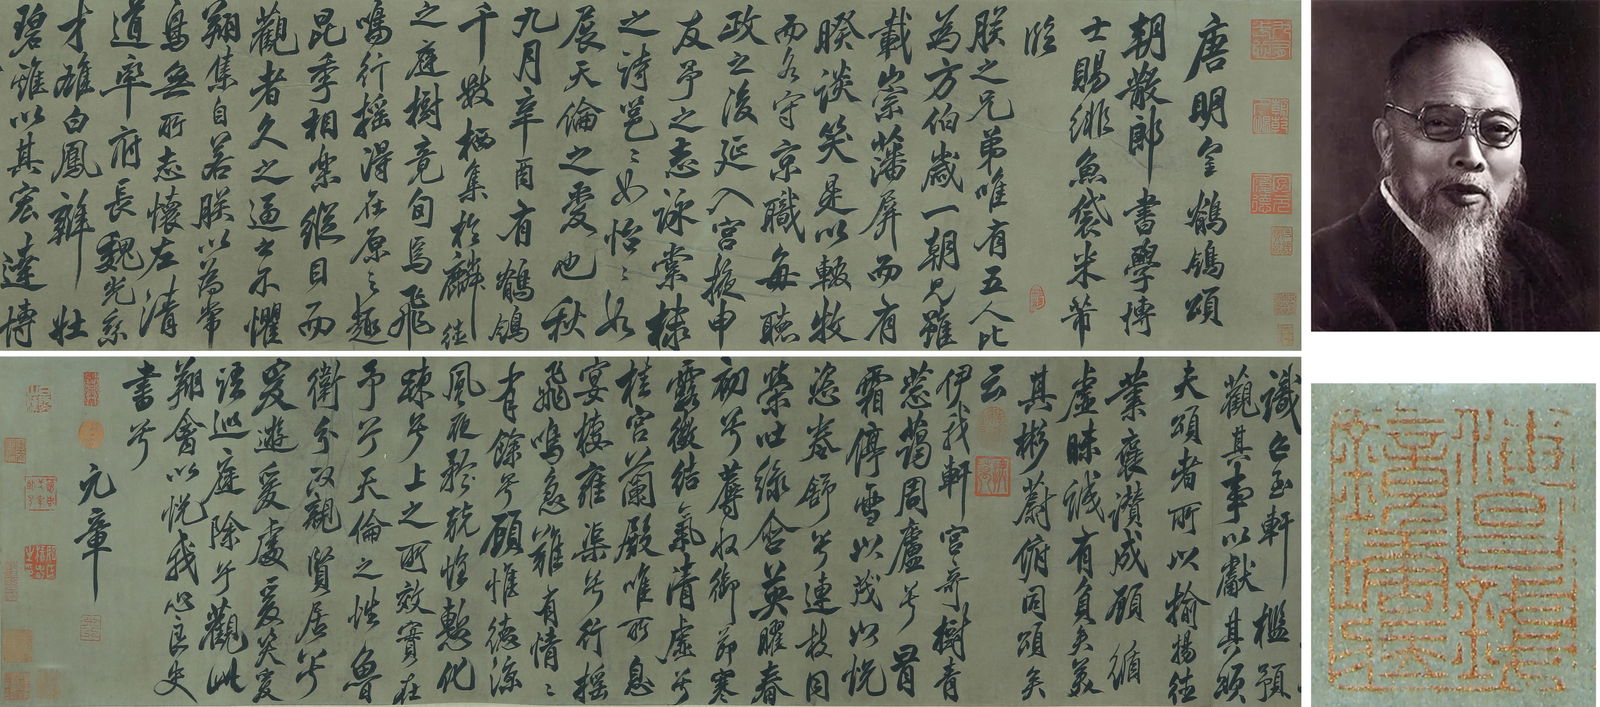 唐明皇鶺鴒頌
朝散郎書學博
士賜緋魚袋米芾
臨
朕之兄弟唯有五人比
為方伯歲一朝見雖
載崇藩屏而有
睽談笑是以輟牧
而各守京職每聴
政之後延入宮掖申
友予之志詠棠棣
之詩邕〻如怡〻如
展天倫之愛也秋
九月辛酉有鶺鴒
千數栖集於麟德
之庭樹竟旬焉飛
鳴行摇得在原之趣
昆季相樂縱目而
觀者久之逼之不懼
翔集自若朕以為常
鳥無所志懷左清
道率府長魏光乗
才雄白鳳辯壯
碧雞以其宏達博
識召至軒檻預
觀其事以獻其頌
夫頌者所以揄揚德
業褒讚成顧循
虛昧誠有負矣美
其彬蔚俯同頌矣
云
伊我軒宮奇樹青
葱藹周廬兮冒
霜停雪以茂以悅
恣卷舒兮連枝同
榮吐綠含英曜春
初兮蓐收御節寒
露微結氣清虛兮
桂宮蘭殿唯所息
宴棲雍渠兮行摇
飛鳴急難有情〻
有餘兮顧惟德涼
夙夜兢兢惶慙化
踈兮上之所效實在
予兮天倫之性魯
衛分政親賢居兮
爰遊爰處爰笑爰
語巡庭除兮觀此
翔會以悅我心良史
書兮
元章